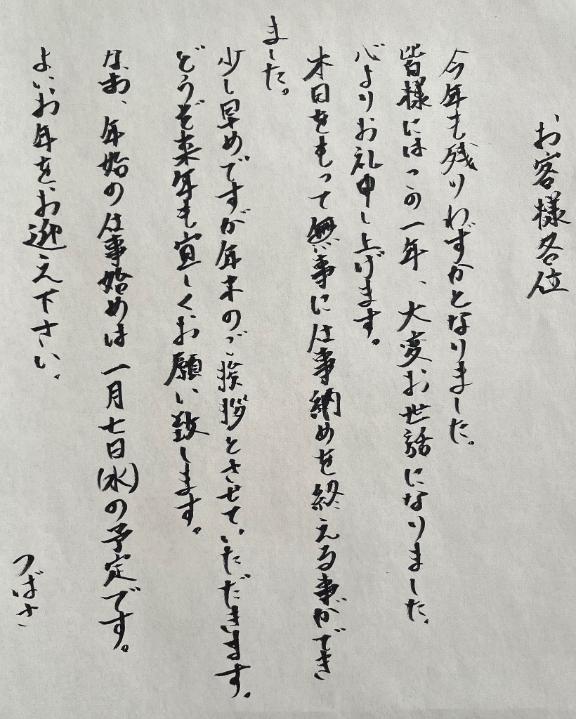 お客様各位
今年も残りわずかとなりました。
皆様にはこの一年、大変お世話になりました。
心よりお礼申し上げます。
本日をもって無事に仕事納めを終える事ができ
ました。
少し早めですが年末のご挨拶とさせて、いただきます。
どうぞ来年も宜しくお願い致します。
なお、年始の仕事始めは一月七日(水)の予定です。
よいお年をお迎え下さい。
つばさ